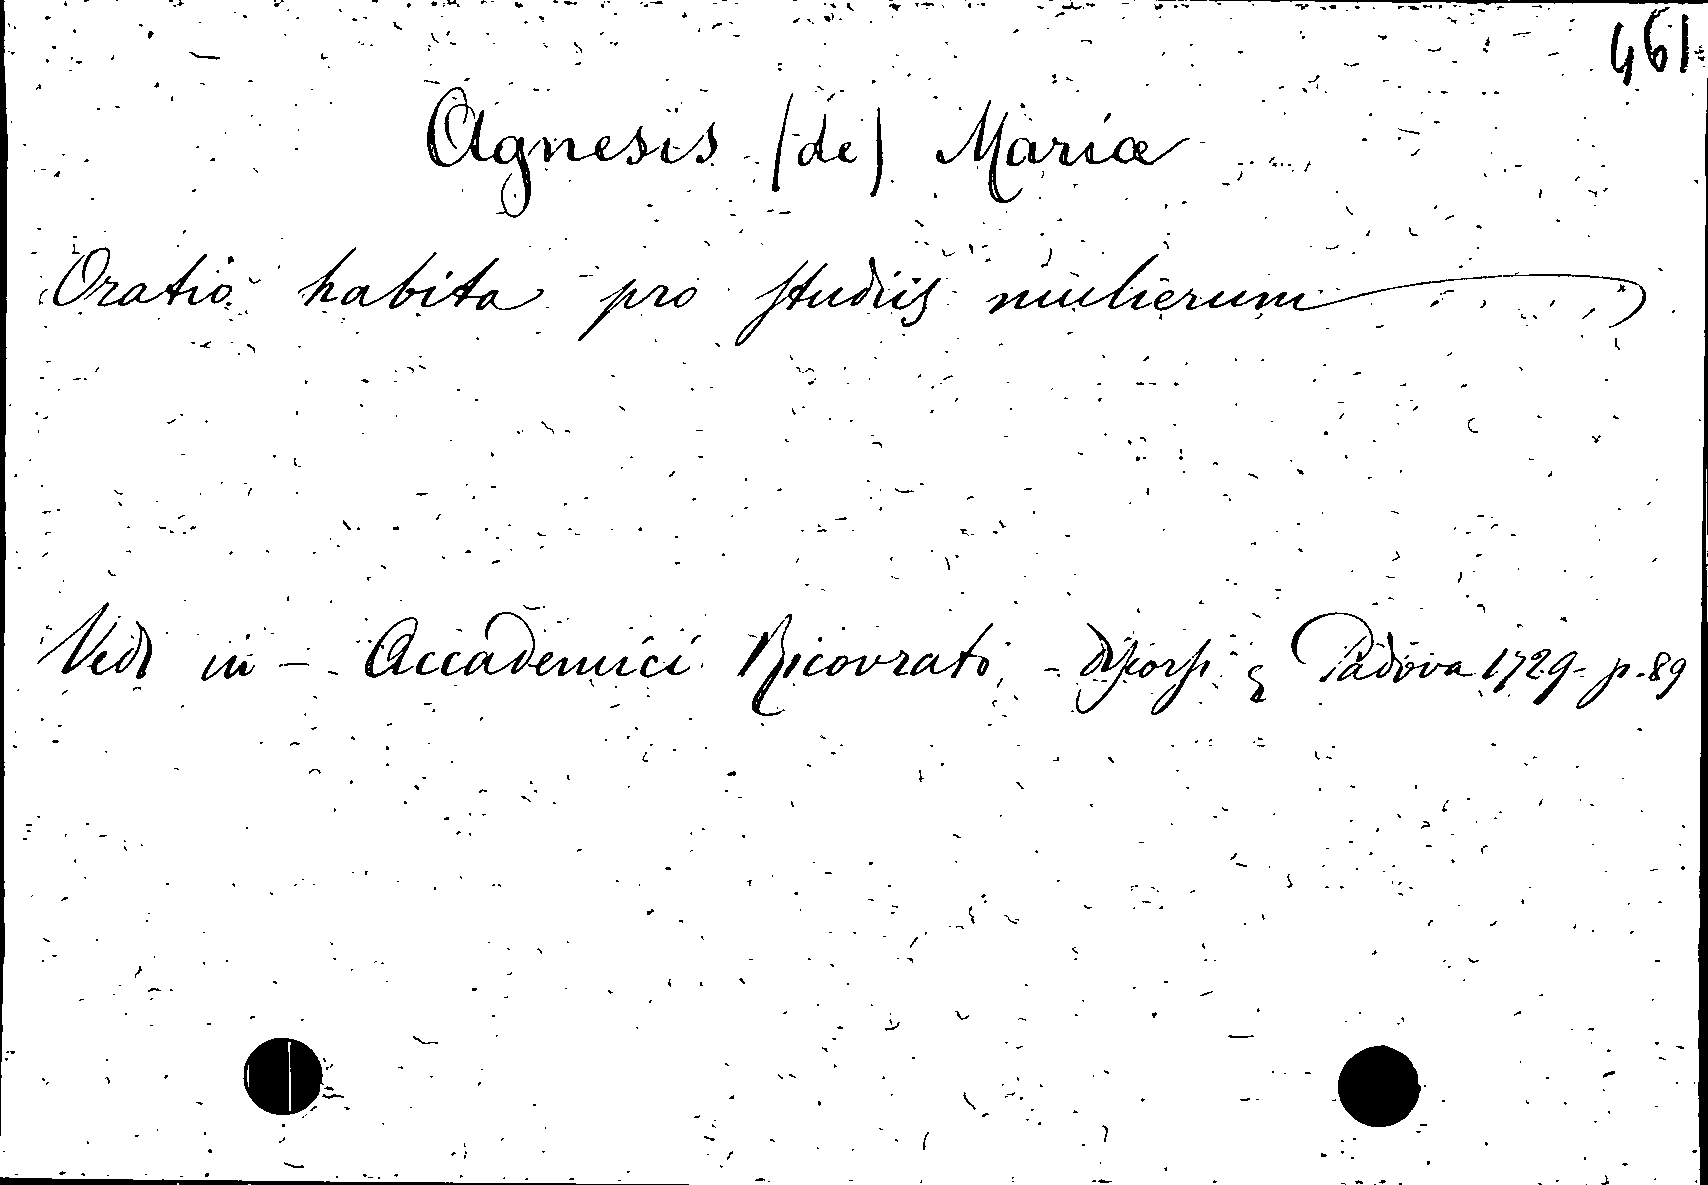 461
Agnesis (de) Mariæ
Oratio habita pro studiis mulierum
Vedi in - Accademici Ricovrati - discorsi Padova 1729 - p. 89